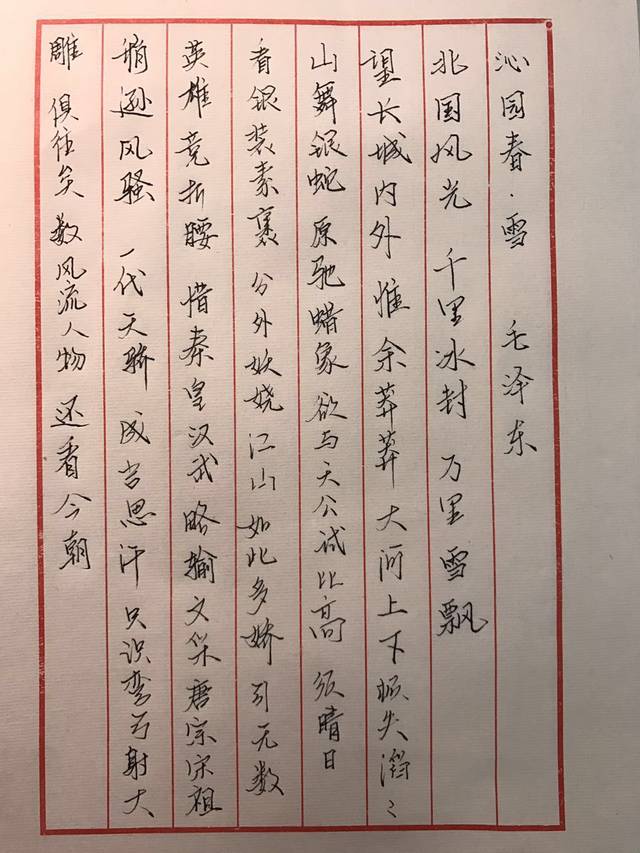 沁园春·雪 毛泽东
北国风光 千里冰封 万里雪飘
望长城内外 惟余莽莽 大河上下 顿失滔々
山舞银蛇 原驰蜡象 欲与天公试比高 须晴日
看银装素裹 分外妖娆 江山如此多娇 引无数
英雄竞折腰 惜秦皇汉武 略输文采 唐宗宋祖
稍逊风骚 一代天骄 成吉思汗 只识弯弓射大
雕 俱往矣 数风流人物 还看今朝